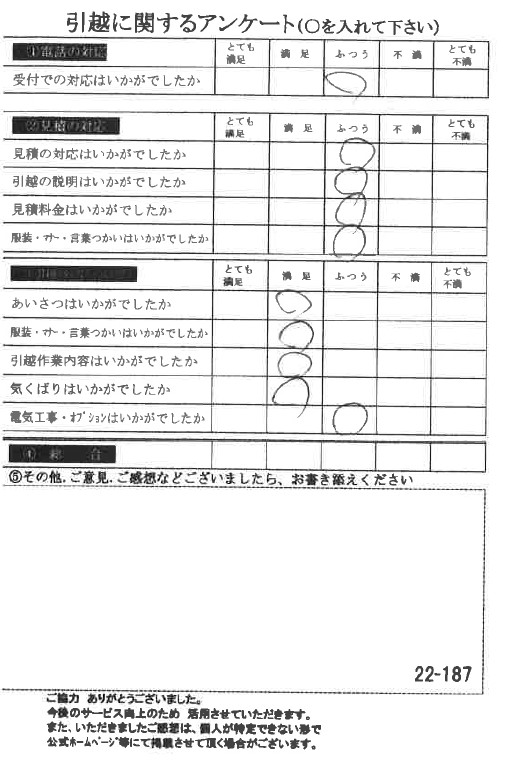 引越に関するアンケート(○を入れて下さい)
①電話の対応 とても満足 満足 ふつう 不満 とても不満
受付での対応はいかがでしたか
②見積の対応 とても満足 満足 ふつう 不満 とても不満
見積の対応はいかがでしたか
引越の説明はいかがでしたか
見積料金はいかがでしたか
服装・マナー・言葉つかいはいかがでしたか
とても満足 満足 ふつう 不満 とても不満
あいさつはいかがでしたか
服装・マナー・言葉つかいはいかがでしたか
引越作業内容はいかがでしたか
気くばりはいかがでしたか
電気工事・オプションはいかがでしたか
④総合
⑤その他.ご意見.ご感想などございましたら、お書き添えください
22-187
ご協力 ありがとうございました。
今後のサービス向上のため 活用させていただきます。
また、いただきましたご感想は、個人が特定できない形で
公式ホームページ等にて掲載させて頂く場合がございます。